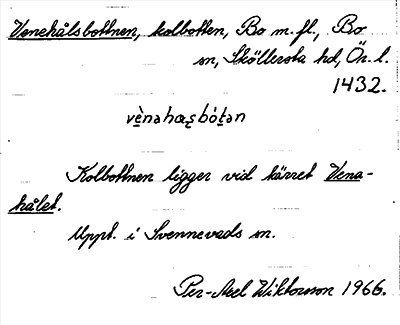 Venehålsbottnen, kolbotten, Bo m.fl., Bo
sn, Sköllersta hd, Ör. l.
1432.
vènahoᶏʂbótən
Kolbottnen ligger vid kärret Vena-
hålet.
Uppt. i Svennevads sn.
Per-Axel Wiktorsson 1966.